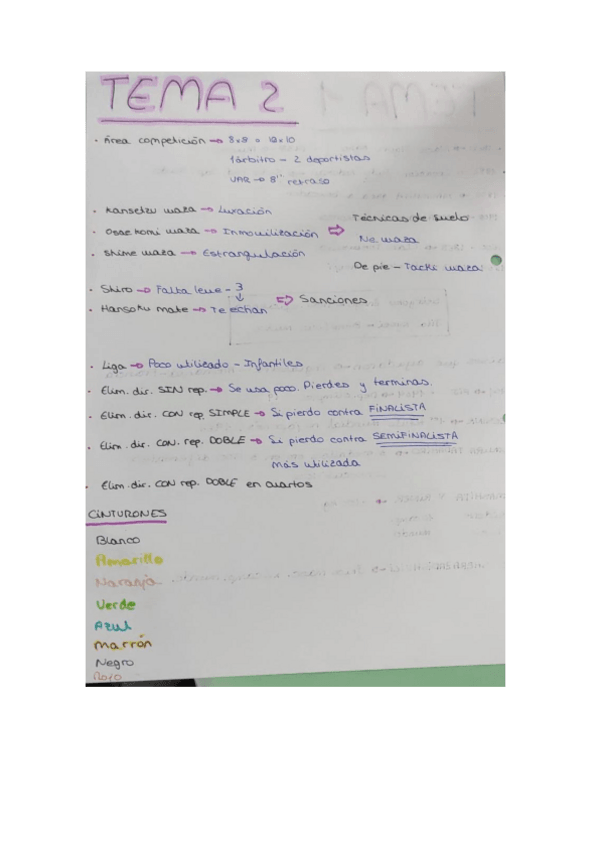 TEMA 2
· Área competición → 8x8 o 10x10
1 árbitro - 2 deportistas
VAR → 8'' retraso
· Kansetzu waza → Luxación
· Osae komi waza → Inmovilización ⇨ Técnicas de suelo
Ne waza
· Shime waza → Estrangulación
De pie - Tachi waza
· Shiro → Falta leve - 3
⇨ Sanciones
· Hansoku make → Te echan
· Liga → Poco utilizado - Infantiles
· Elim. dir. SIN rep. → Se usa poco. Pierdes y terminas.
· Elim. dir. CON rep. SIMPLE → Si pierdo contra FINALISTA
· Elim. dir. CON. rep. DOBLE → Si pierdo contra SEMIFINALISTA
más utilizada
· Elim. dir. CON rep. DOBLE en cuartos
CINTURONES
Blanco
Amarillo
Naranja
Verde
Azul
Marrón
Negro
Rojo